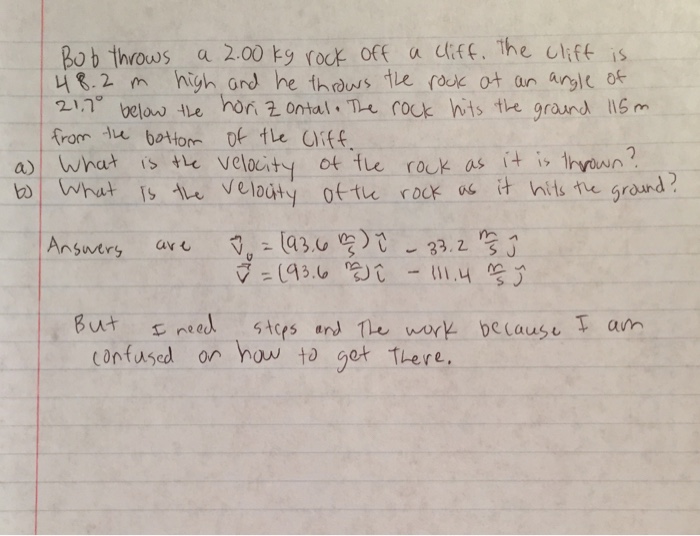 Bob throws a 2.00 kg rock off a cliff. The cliff is
48.2 m high and he throws the rock at an angle of
21.7° below the horizontal. The rock hits the ground 115 m
from the bottom of the cliff.
a) What is the velocity of the rock as it is thrown?
b) What is the velocity of the rock as it hits the ground?
Answers are v⃗₀ = (93.6 m/s) î - 37.2 m/s ĵ
v⃗ = (93.6 m/s) î - 111.4 m/s ĵ
But I need steps and The work because I am
confused on how to get There.